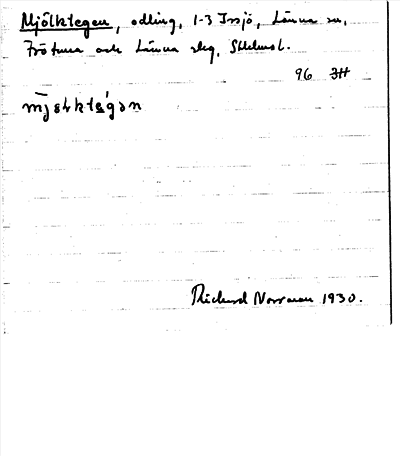 Mjölktegen, odling, 1-3 Issjö, Länna sn,
Frötuna och Länna skg, Sthlms l.
96 JH
mjɵlktegən
Rickard Norrman 1930.